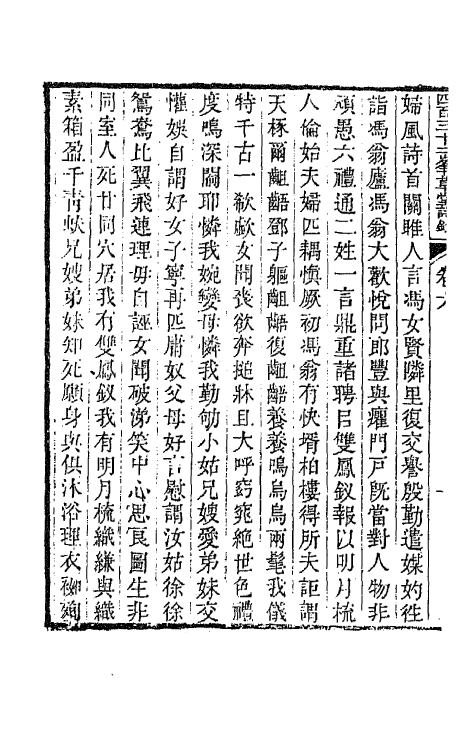 婦風詩首關雎人言馮女賢隣里復交譽殷勤遣媒妁徃
詣馮翁廬馮翁大歡悅問郎豐與癯門戸旣當對人物非
頑愚六禮通二姓一言鼎重諸聘㠯雙鳳釵報以明月梳
人倫始夫婦匹耦愼厥初馮翁有快壻柏樓得所夫詎謂
天椓爾齟齬鄧子軀齟齬復齟齬養養鳴烏烏兩髦我儀
特千古一欷歔女聞喪欲奔搥牀且大呼窈窕絶世色禮
度嗚深閨耶憐我婉孌母憐我勤劬小姑兄嫂愛弟妹交
懽娛自謂好女子寧再匹庸奴父母好言慰謂汝姑徐徐
鴛鴦比翼飛連理毋自誣女聞破涕笑中心思良圖生非
同室人死甘同穴居我有雙鳳釵我有明月梳織縑與織
素箱盈千靑蚨兄嫂弟妹知死願身與俱沐浴理衣裯殉
四百三十二峯草堂詩鈔 卷六